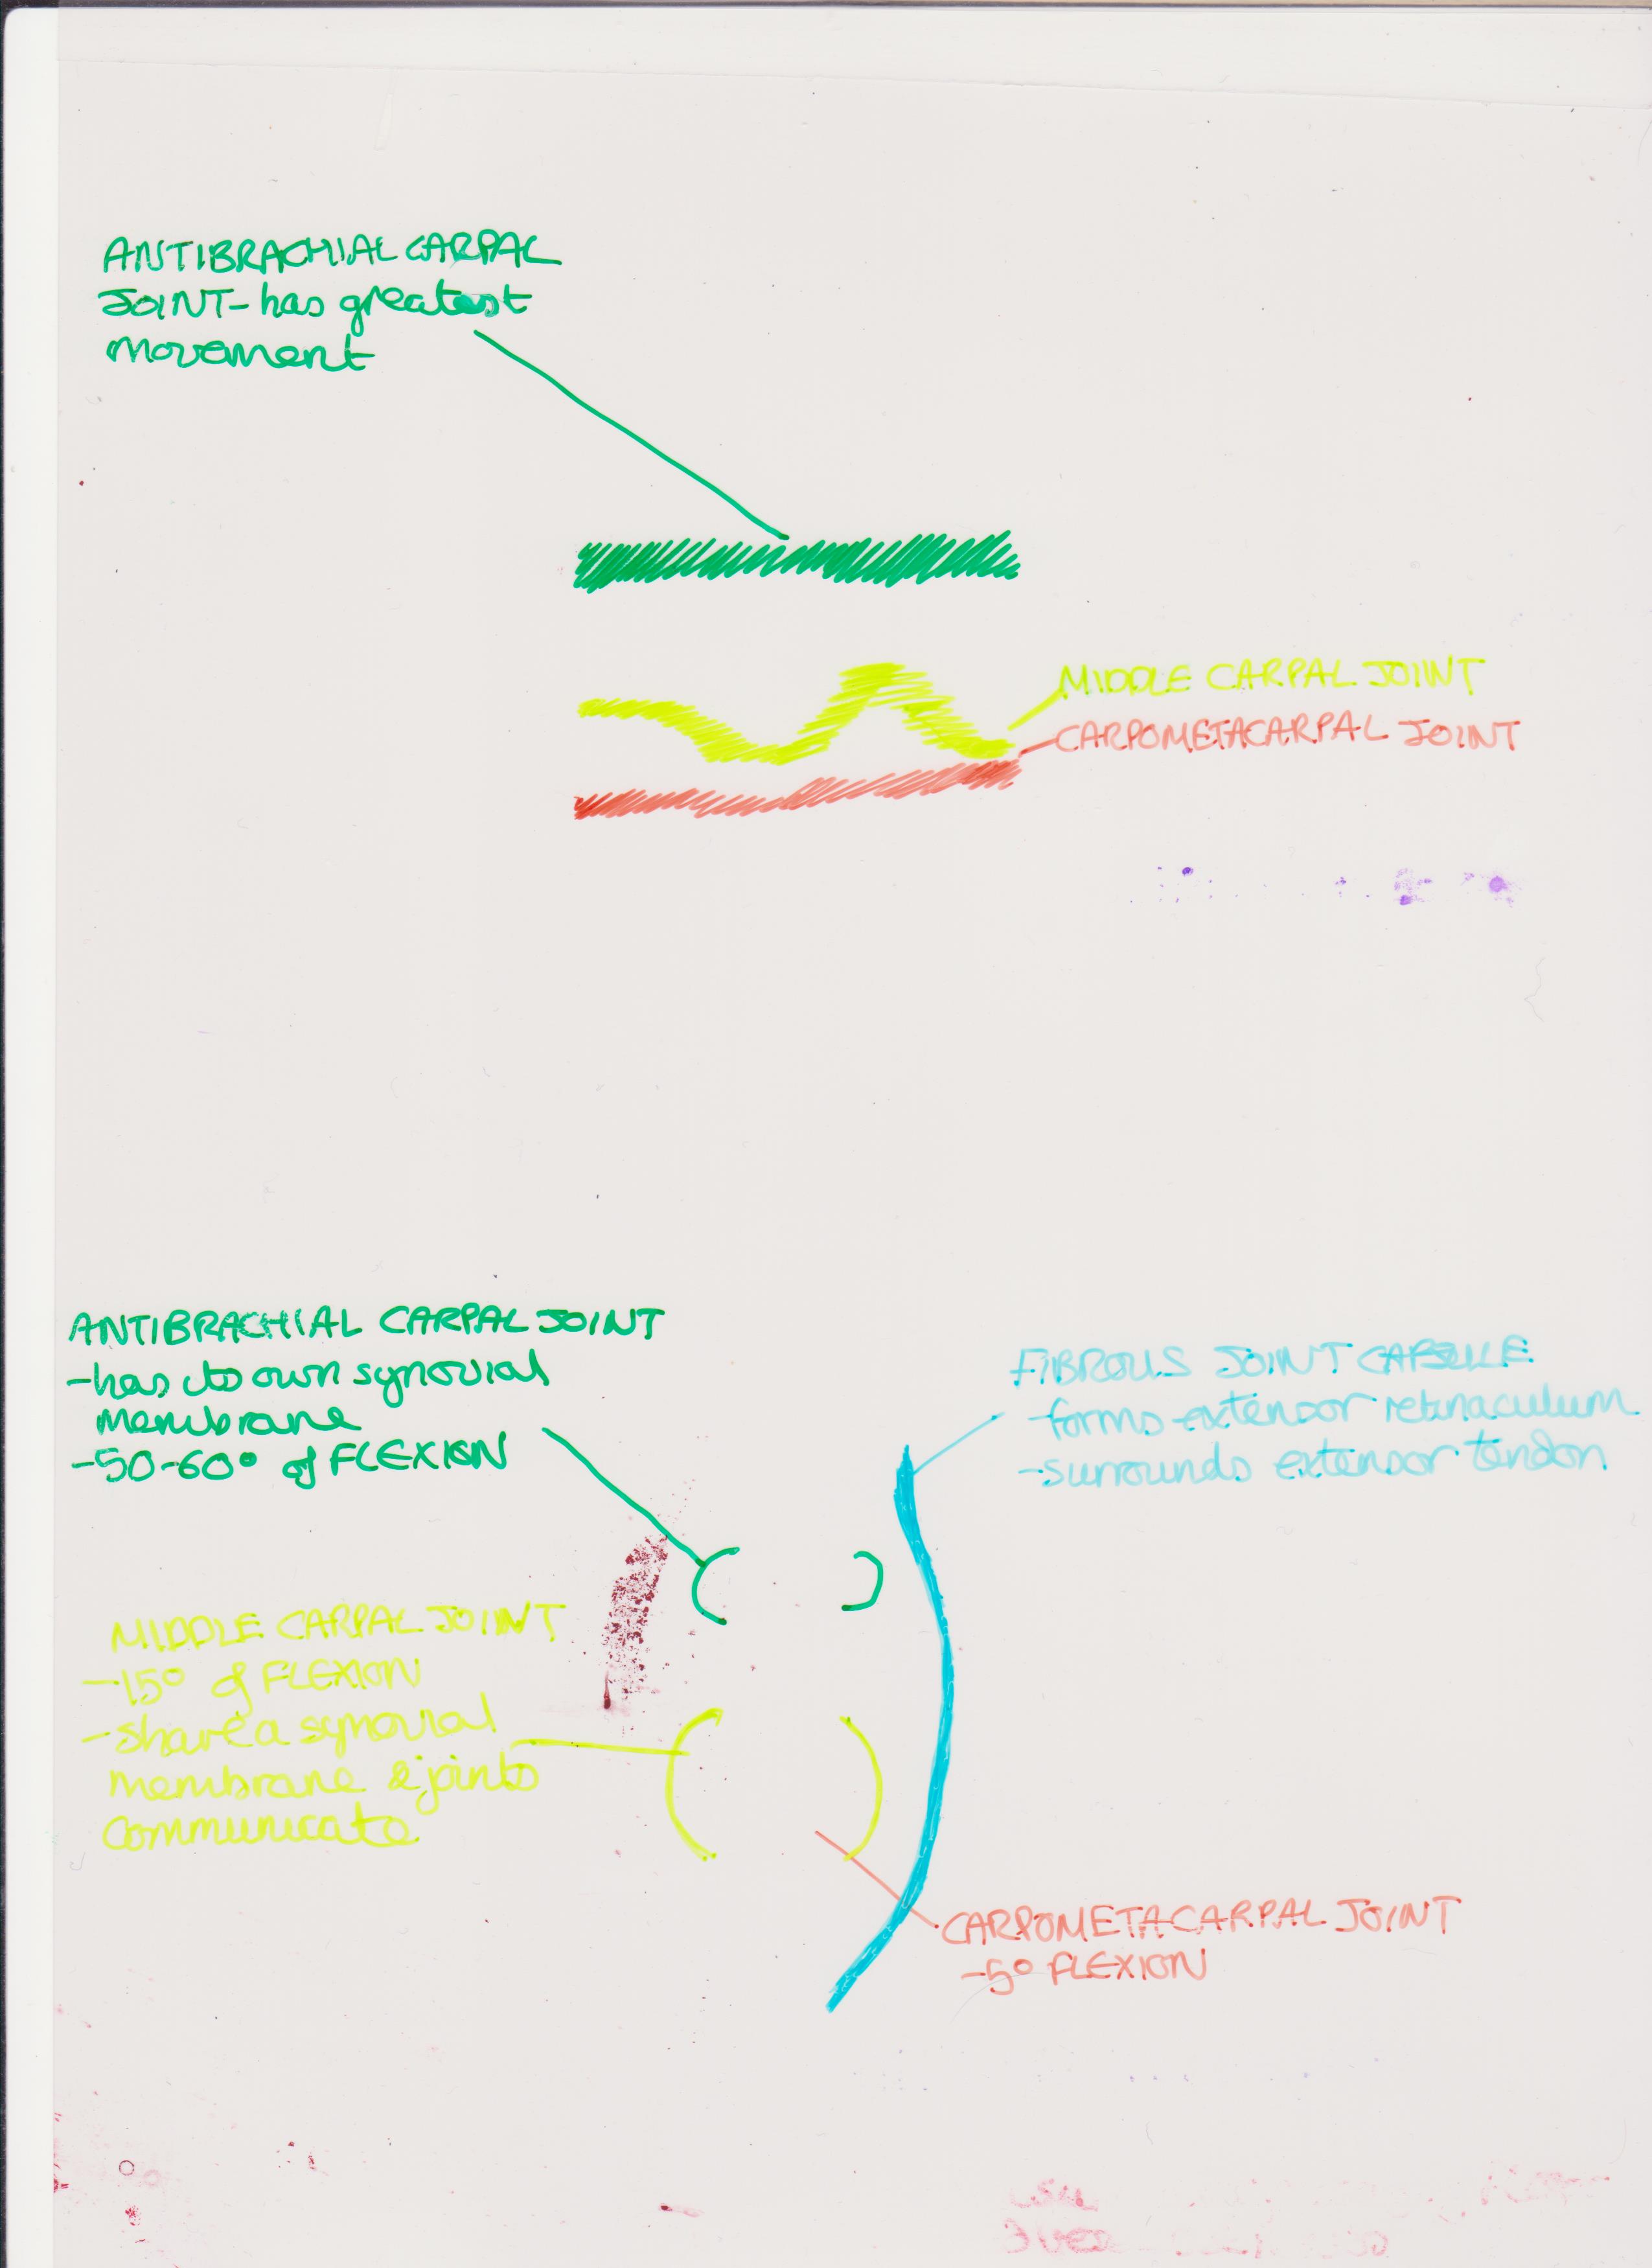 ANTIBRACHIAL CARPAL
JOINT - has greatest
movement
MIDDLE CARPAL JOINT
CARPOMETACARPAL JOINT
ANTIBRACHIAL CARPAL JOINT
- has its own synovial
membrane
- 50-60° of FLEXION
FIBROUS JOINT CAPSULE
- forms extensor retinaculum
- surrounds extensor tendon
MIDDLE CARPAL JOINT
- 15° of FLEXION
- share a synovial
membrane & joints
communicate
CARPOMETACARPAL JOINT
- 5° FLEXION